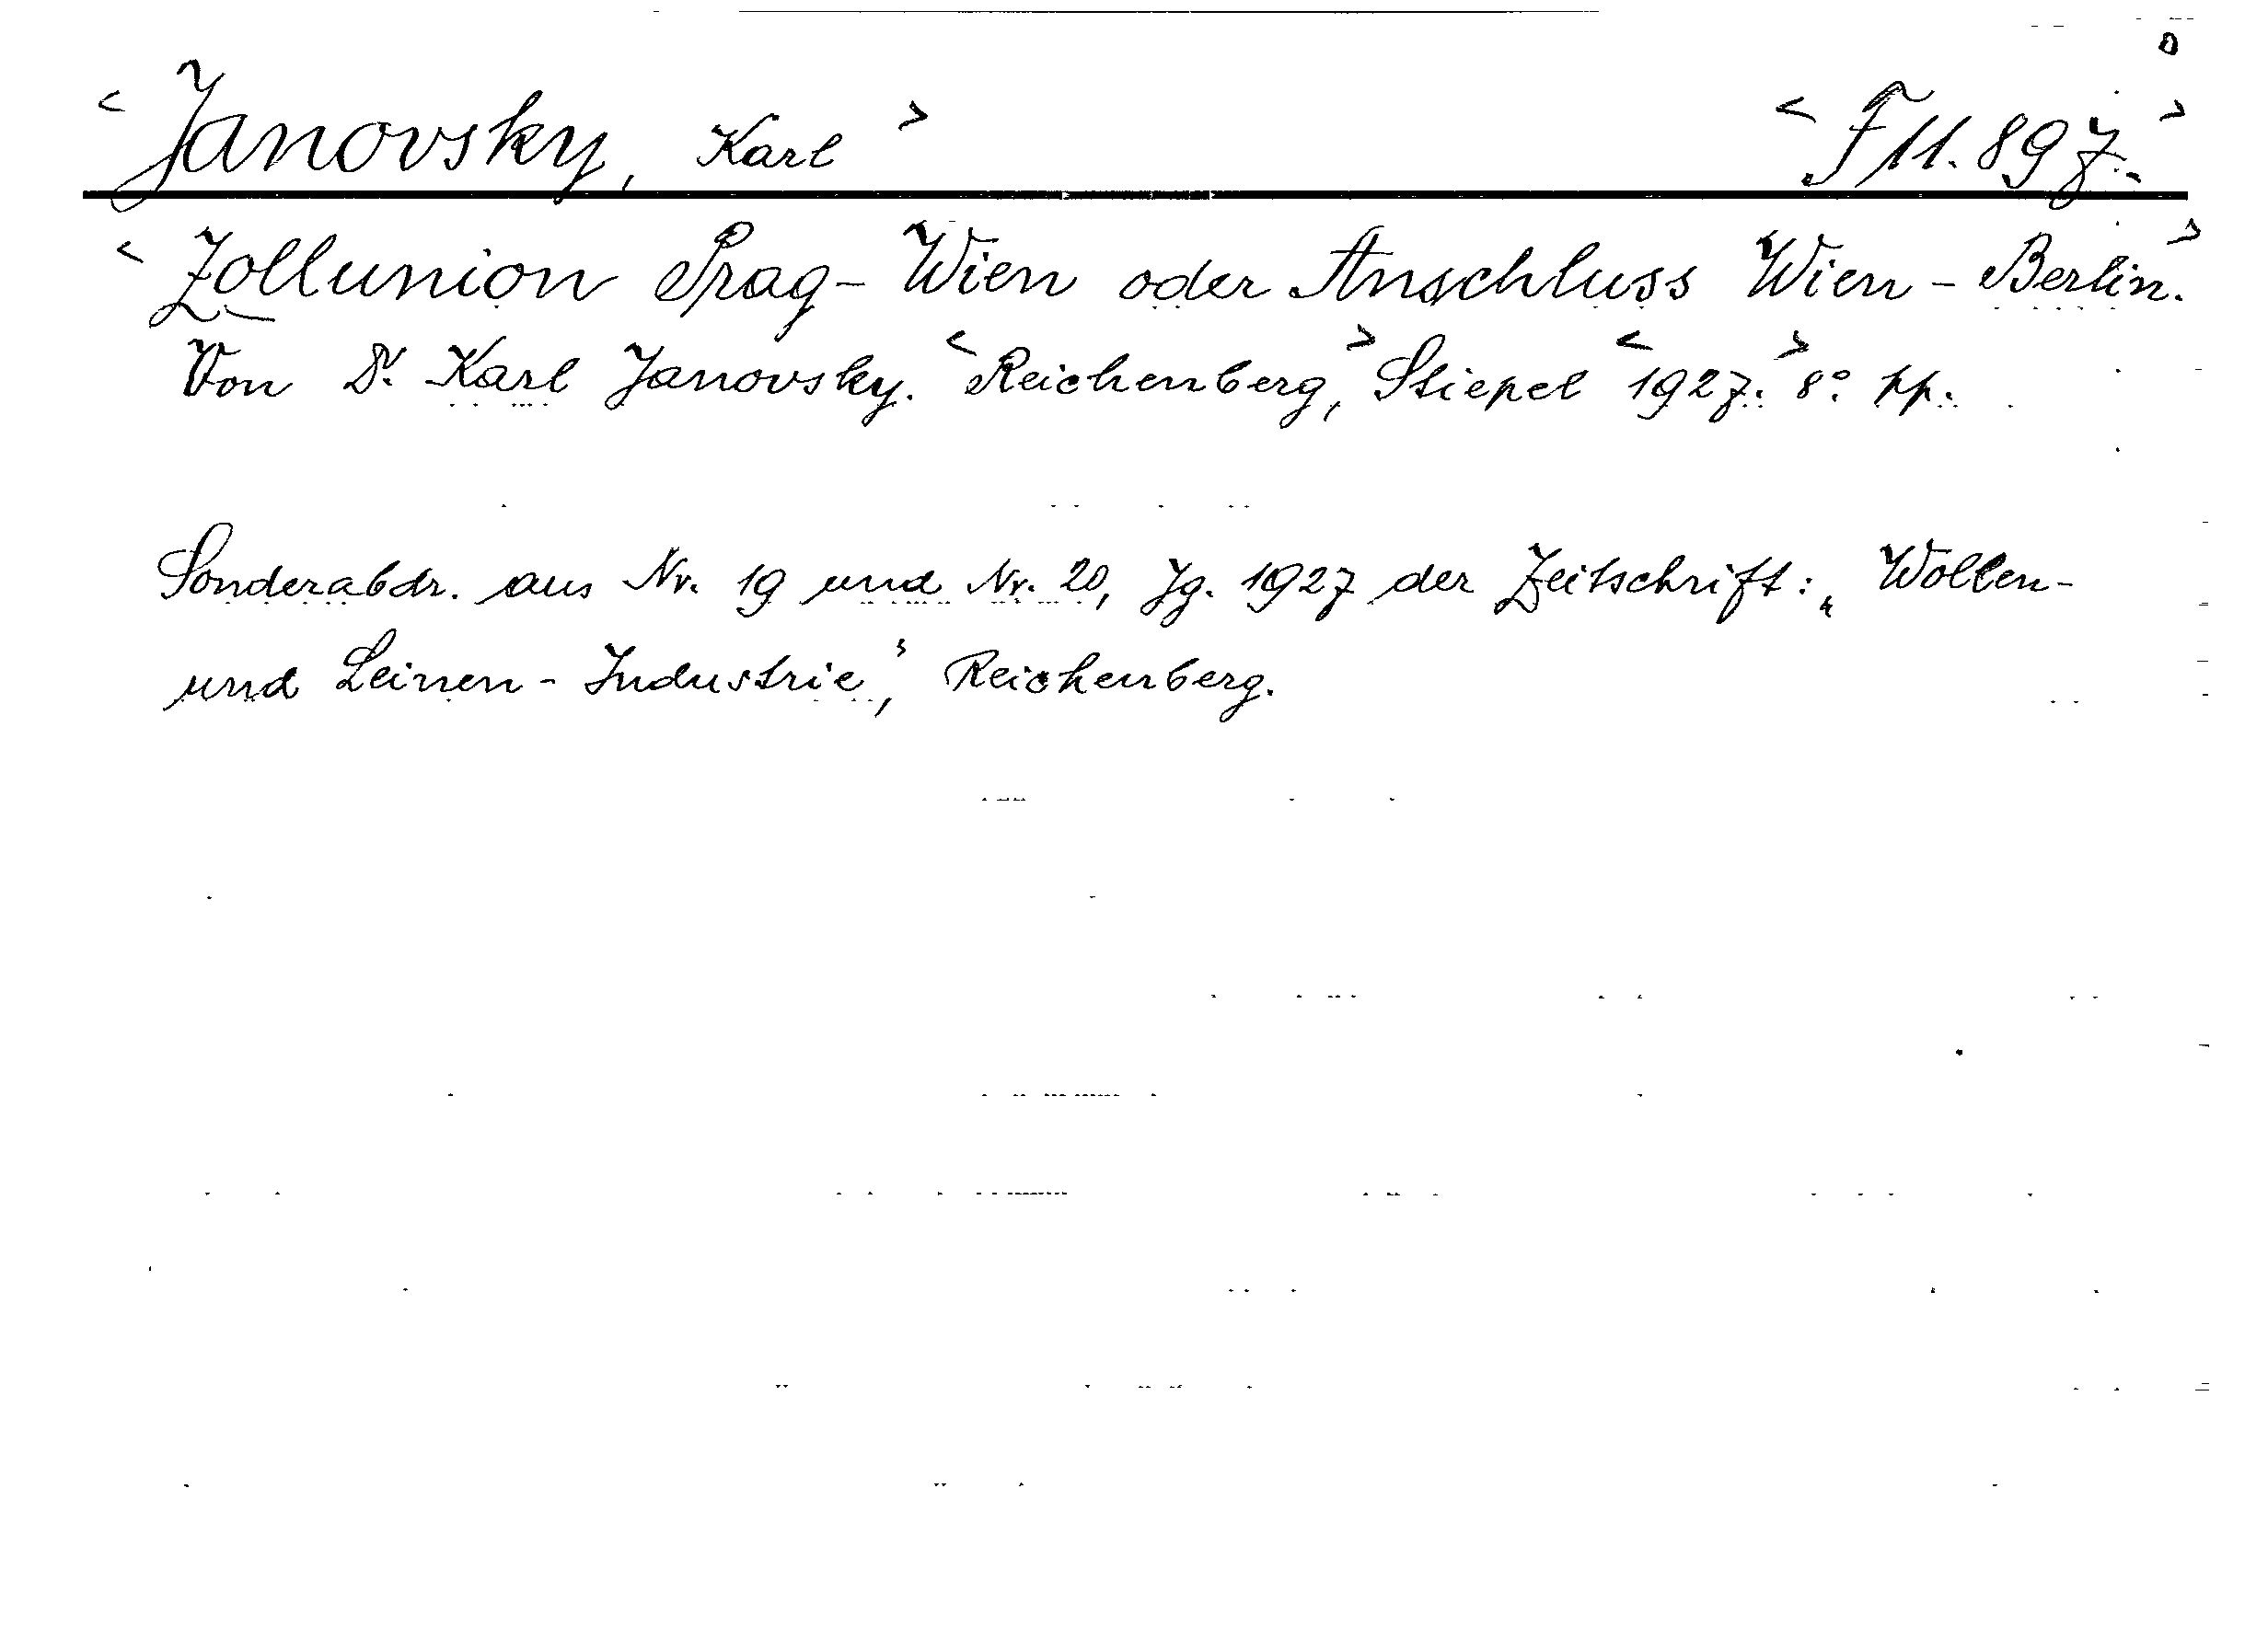 < Janovsky, Karl > < F 11.897. >
< Zollunion Prag - Wien oder Anschluss Wien - Berlin. >
Von Dr. Karl Janovsky. < Reichenberg, > Stiepel < 1927. > 8° pp.
Sonderabdr. aus Nr. 19 und Nr. 20, Jg. 1927 der Zeitschrift: „Wollen-
und Leinen - Industrie", Reichenberg.